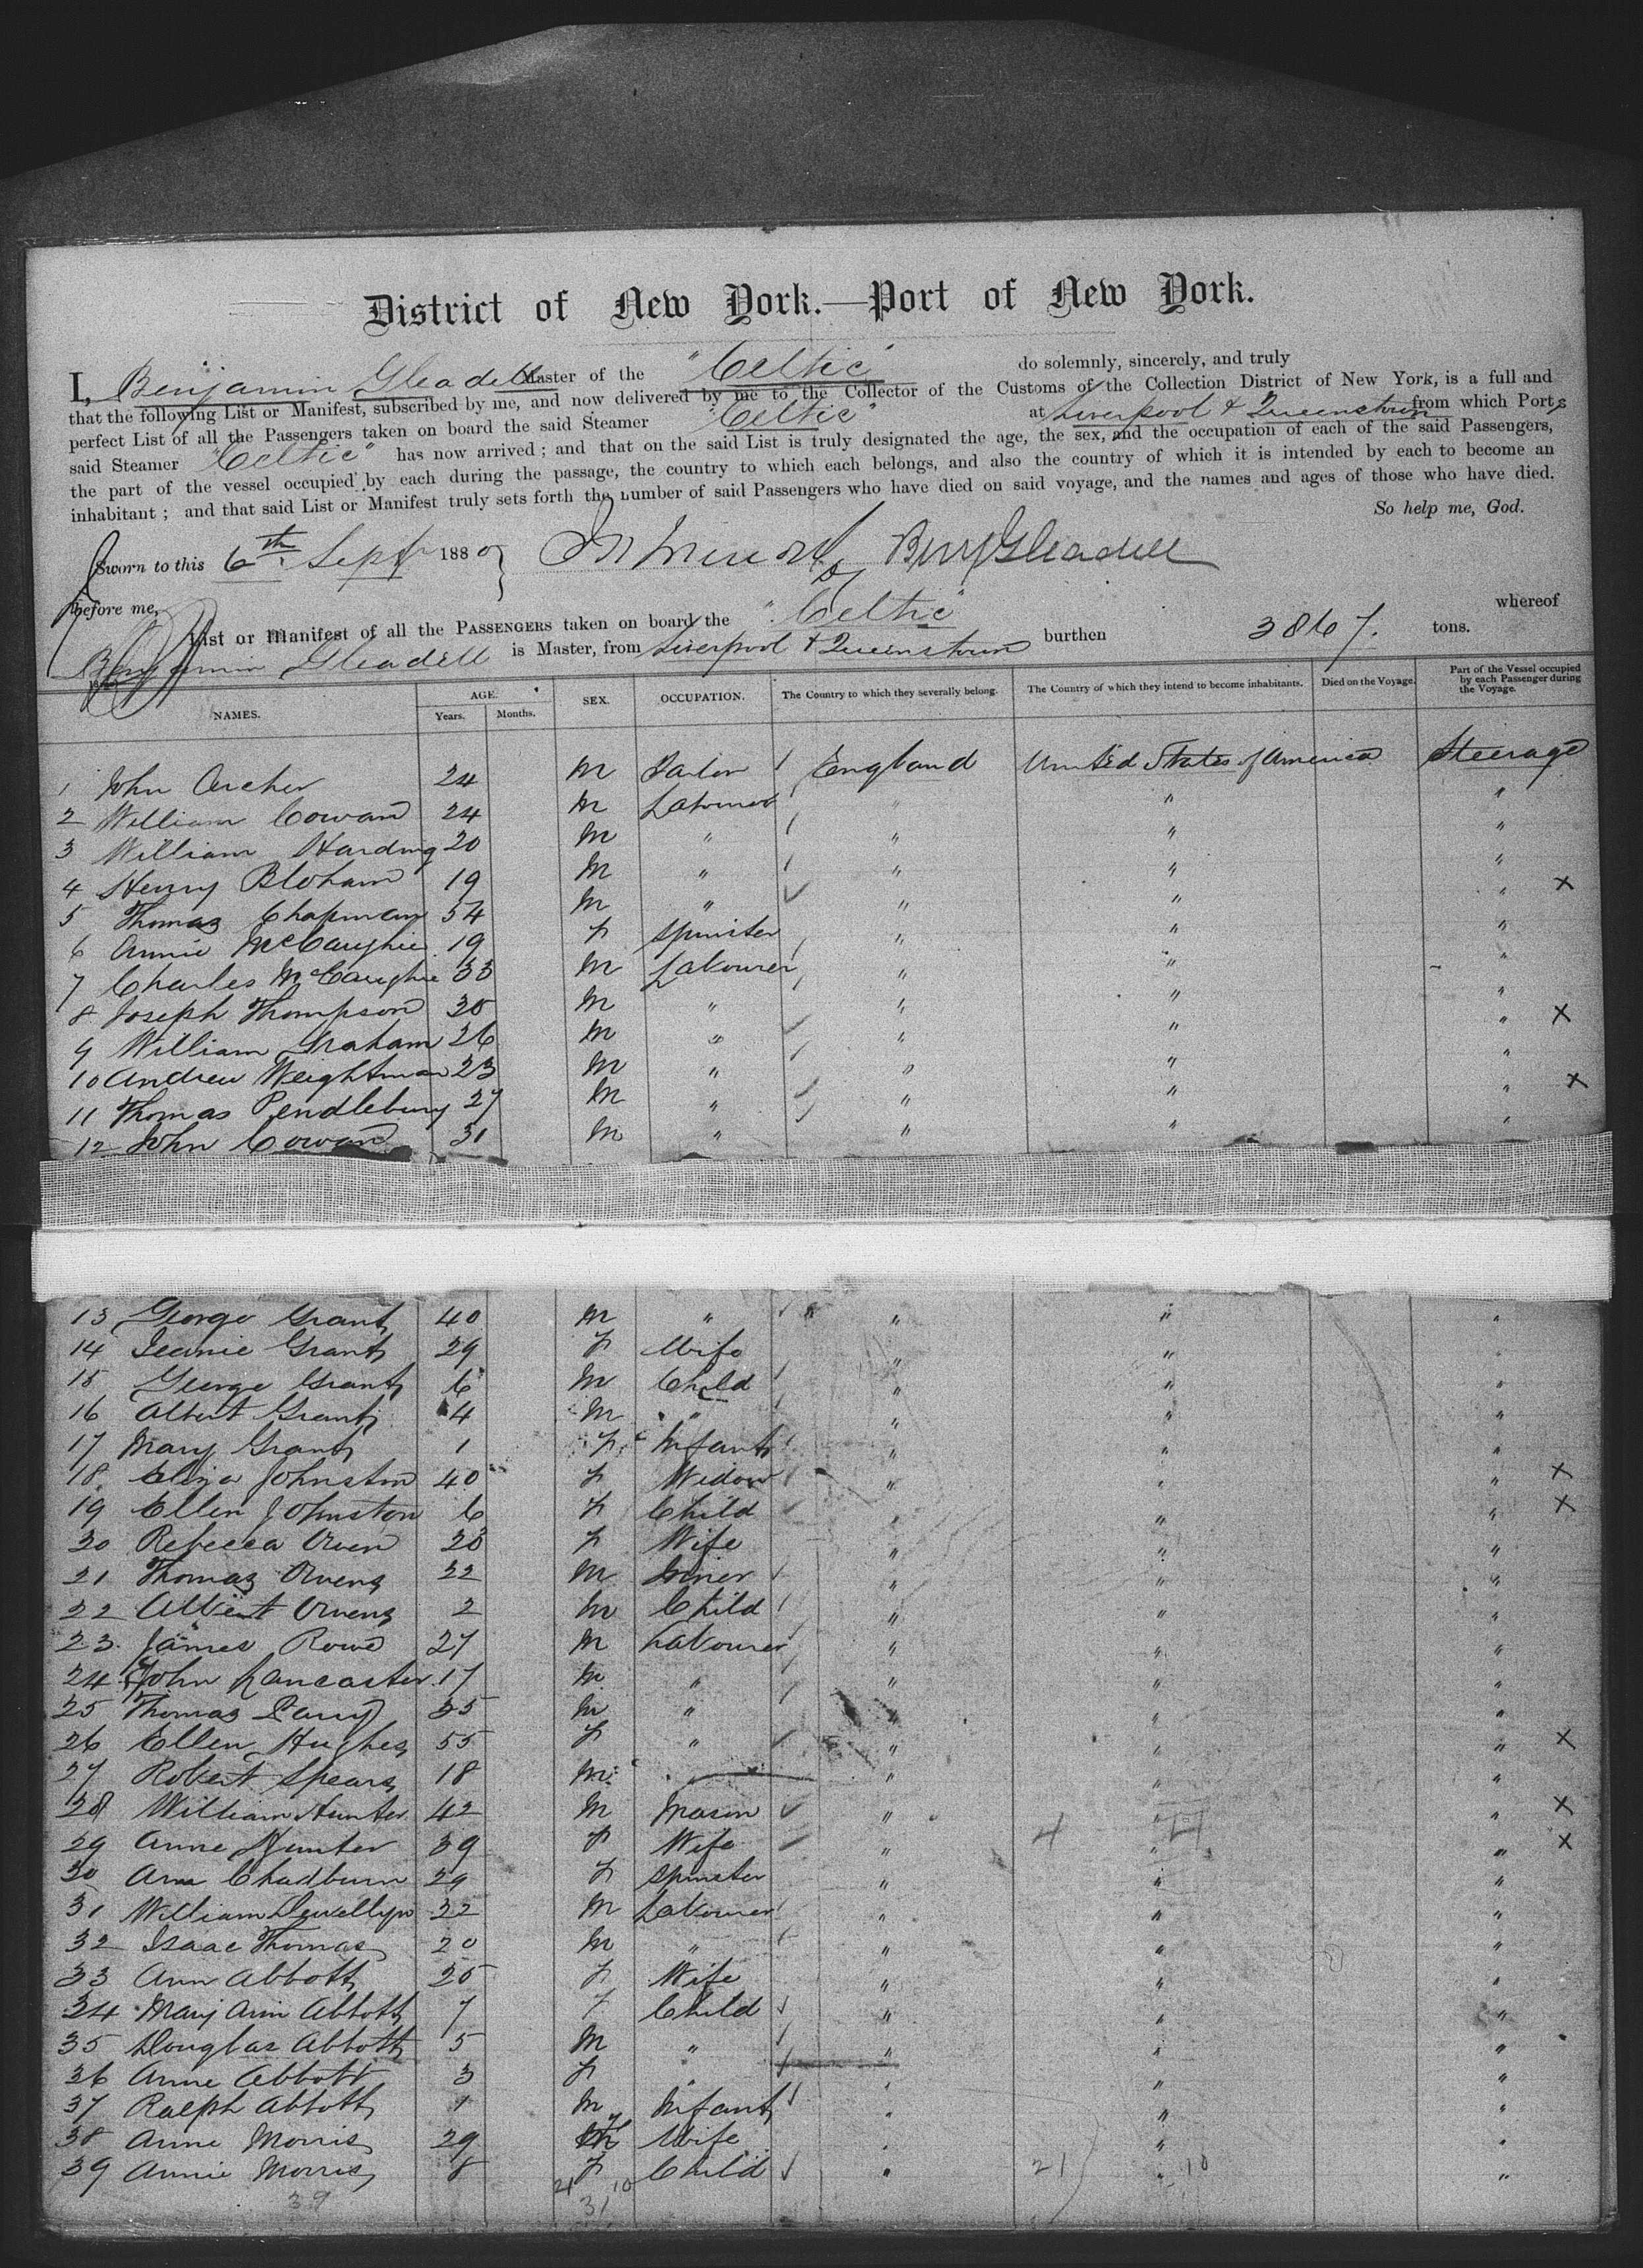 District of New York.—Port of New York.
I, Benjamin Gleadell Master of the "Celtic" do solemnly, sincerely, and truly
that the following List or Manifest, subscribed by me, and now delivered by me to the Collector of the Customs of the Collection District of New York, is a full and
perfect List of all the Passengers taken on board the said Steamer "Celtic" at Liverpool & Queenstown from which Ports
said Steamer "Celtic" has now arrived; and that on the said List is truly designated the age, the sex, and the occupation of each of the said Passengers,
the part of the vessel occupied by each during the passage, the country to which each belongs, and also the country of which it is intended by each to become an
inhabitant; and that said List or Manifest truly sets forth the number of said Passengers who have died on said voyage, and the names and ages of those who have died.
So help me, God.
Sworn to this 6th Sept 1880 Benj Gleadell
before me,
List or Manifest of all the PASSENGERS taken on board the "Celtic" whereof
Benjamin Gleadell is Master, from Liverpool & Queenstown burthen 3867. tons.
NAMES. AGE. Years. Months. SEX. OCCUPATION. The Country to which they severally belong. The Country of which they intend to become inhabitants. Died on the Voyage. Part of the Vessel occupied by each Passenger during the Voyage.
1 John Archer 24 M Tailor England United States of America Steerage
2 William Cowan 24 M Labourer " " "
3 William Harding 20 M " " " "
4 Henry Bloham 19 M " " " "
5 Thomas Chapman 54 M " " " " X
6 Annie McCaughie 19 F Spinster " " "
7 Charles McCaughie 33 M Labourer " " "
8 Joseph Thompson 30 M " " " "
9 William Graham 26 M " " " " X
10 Andrew Weightman 23 M " " " "
11 Thomas Pendlebury 27 M " " " " X
12 John Cowan 31 M " " " "
13 George Grant 40 M " " " "
14 Jeanie Grant 29 F Wife " " "
15 George Grant 6 M Child " " "
16 Albert Grant 4 M " " " "
17 Mary Grant 1 F Infant " " "
18 Eliza Johnston 40 F Widow " " " X
19 Ellen Johnston 6 F Child " " " X
20 Rebecca Owen F Wife " " "
21 Thomas Owens 22 M Miner " " "
22 Albert Owens 2 M Child " " "
23 James Rowe 27 M Labourer " " "
24 John Lancaster 17 M " " " "
25 Thomas Parry 35 M " " " "
26 Ellen Hughes 55 F " " " " X
27 Robert Spears 18 M " " "
28 William Hunter 42 M Mason " " " X
29 Anne Hunter 39 F Wife " 4 " " X
30 Ann Chadburn 29 F Spinster " " "
31 William Llewellyn 32 M Labourer " " "
32 Isaac Thomas 20 M " " " "
33 Ann Abbott 25 F Wife " " "
34 Mary Ann Abbott 7 F Child " " "
35 Douglas Abbott 5 M " " " "
36 Anne Abbott 3 F " " " "
37 Ralph Abbott 1 M Infant " " "
38 Anne Morris 29 F Wife " " "
39 Annie Morris 8 F Child " 21 " 10 "
39 21 10
31